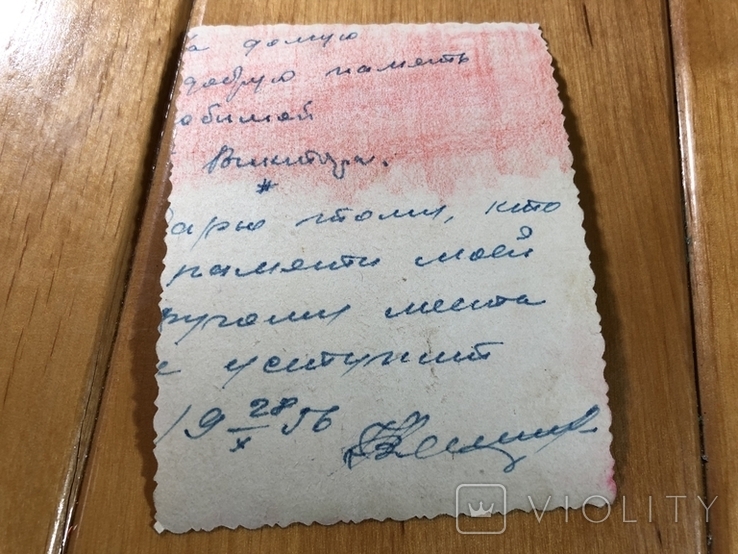 на долгую
добрую память
юбимой
Виктору.
#
дарю тому, кто
памяти моей
другому места
не уступит
19 28/X 56
VIOLITY